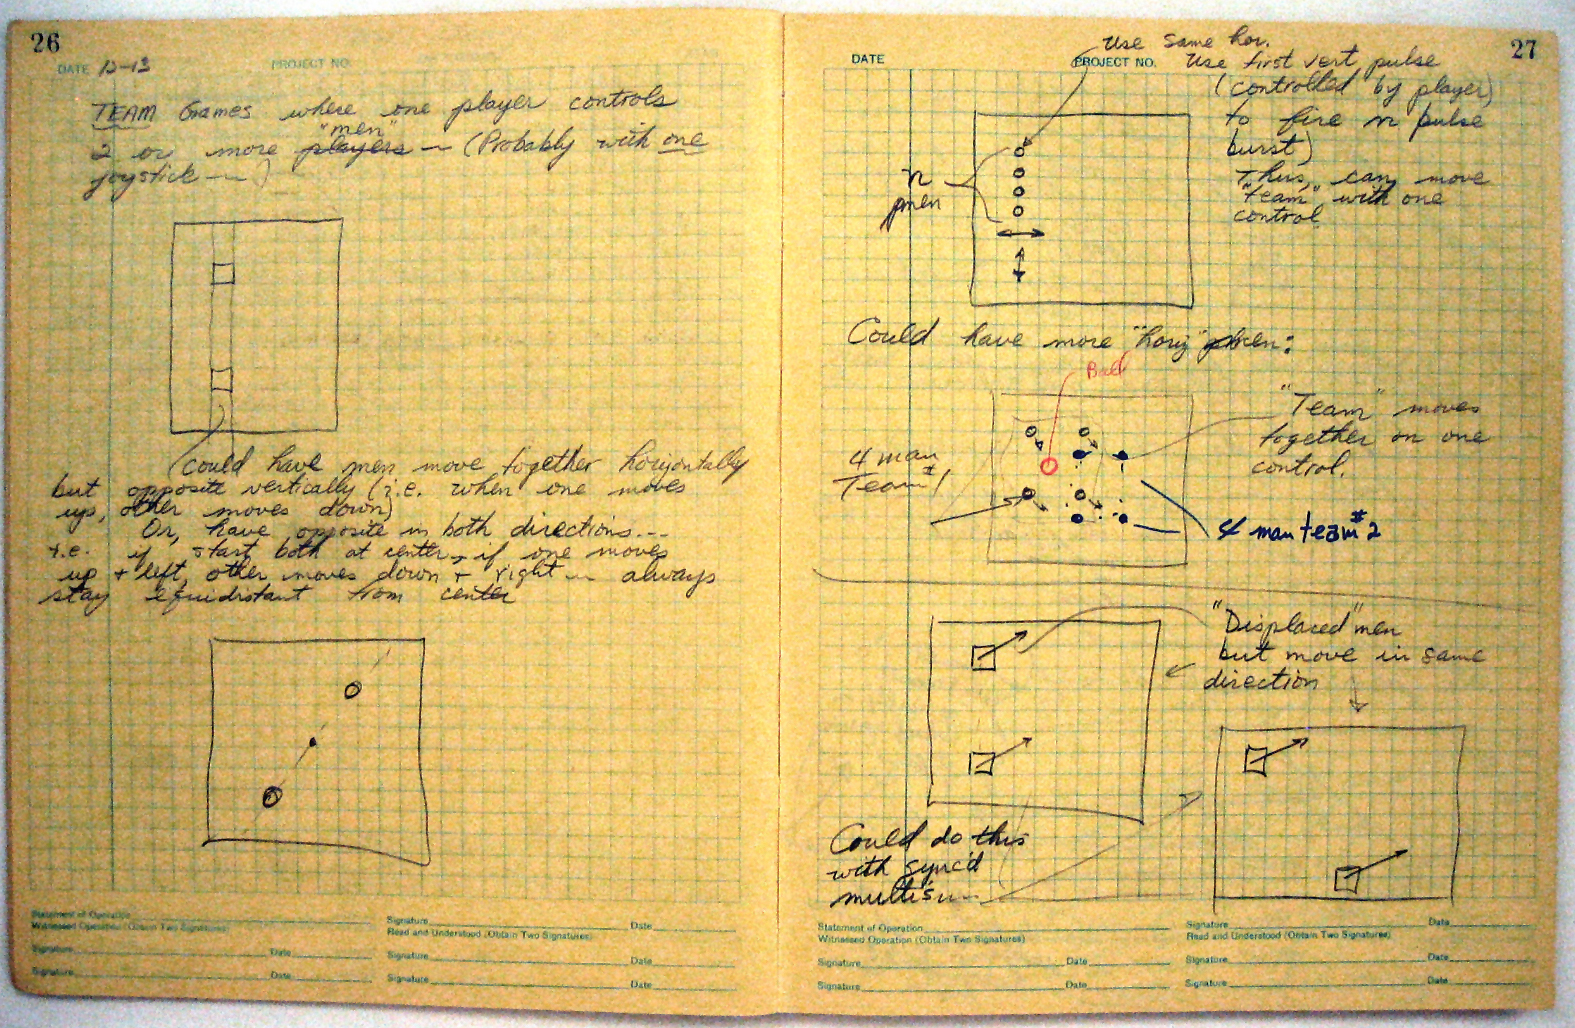 26
DATE 12-13 PROJECT NO.
TEAM Games where one player controls
"men"
2 or more players — (Probably with one
joystick — )
(could have men move together horizontally
but opposite vertically (i.e. when one moves
up, other moves down)
Or, have opposite in both directions...
i.e. if start both at center, if one moves
up + left, other moves down + right — always
stay equidistant from center
Statement of Operation
Witnessed Operation (Obtain Two Signatures)
Signature Date
Signature Date
Signature Date
Read and Understood (Obtain Two Signatures)
Signature Date
Signature Date
27
DATE PROJECT NO.
Use same hor.
Use first vert pulse
(controlled by player)
to fire n pulse
burst)
Thus, can move
"team" with one
control
n
men
Could have more "horiz" men:
Ball
"Team" moves
together on one
control.
4 man
Team #1
4 man team #2
"Displaced" men
but move in same
direction
Could do this
with sync'd
multi's —
Statement of Operation
Witnessed Operation (Obtain Two Signatures)
Signature Date
Signature Date
Signature Date
Read and Understood (Obtain Two Signatures)
Signature Date
Signature Date